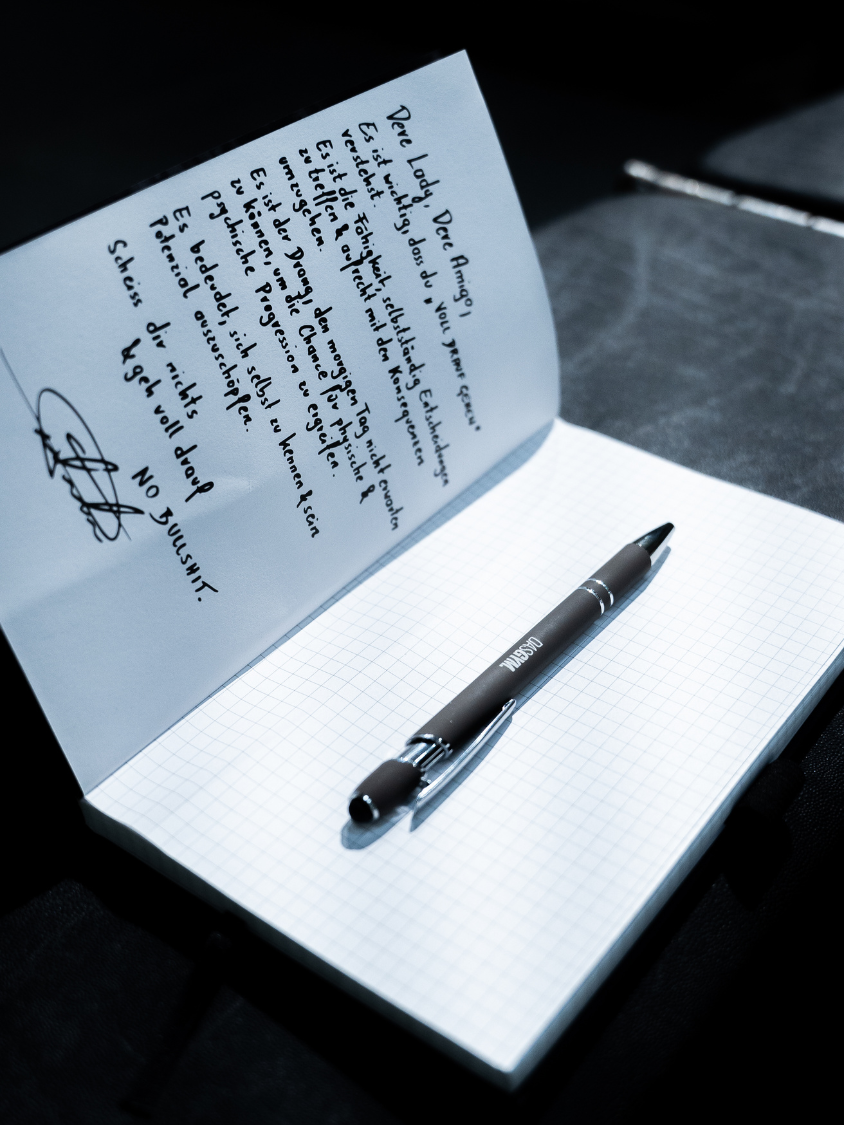 Dere Lady, Dere Amigo,
Es ist wichtig, dass du „VOLL DRAUF GEHEN"
verstehst.
Es ist die Fähigkeit, selbstständig Entscheidungen
zu treffen & aufrecht mit den Konsequenzen
umzugehen.
Es ist der Drang, den morgigen Tag nicht erwarten
zu können, um die Chance für physische &
psychische Progression zu ergreifen.
Es bedeutet, sich selbst zu kennen & sein
Potenzial auszuschöpfen.
Scheiss dir nichts
& geh voll drauf
NO BULLSHIT.
OASEGYM